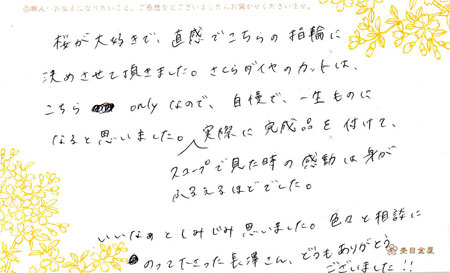 ◎職人・お伝えになりたいこと、ご感想などございましたらお聞かせくださいませ。
桜が大好きで、直感でこちらの指輪に
決めさせて頂きました。さくらダイヤのカットは、
こちら onlyなので、自慢で、一生ものに
なると思いました。実際に完成品を付けて、
スコープで見た時の感動は身が
ふるえるほどでした。
いいなぁとしみじみ思いました。色々と相談に
のって下さった長澤さん、どうもありがとう
ございました!!
杢目金屋